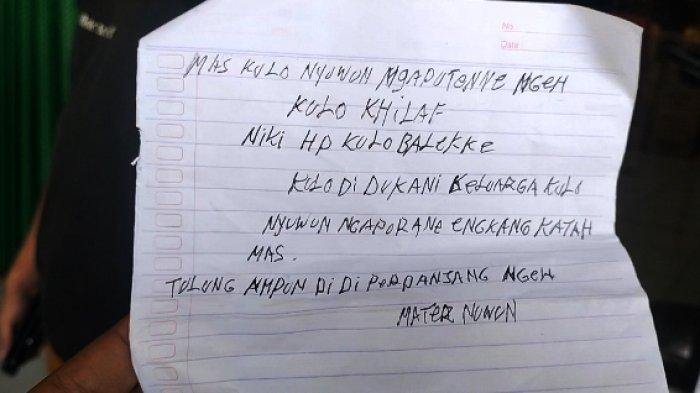 No
Date
MAS KULO NYUWUN MGAPUTENNE NGEH
KULO KHILAF
NIKI HP KULO BALEKKE
KULO DI DUKANI KELUARGA KULO
NYUWUN NGAPORANE ENGKANG KATAH
MAS.
TULUNG AMPUN DI DI PERPANJANG NGEH
MATER NUWUN